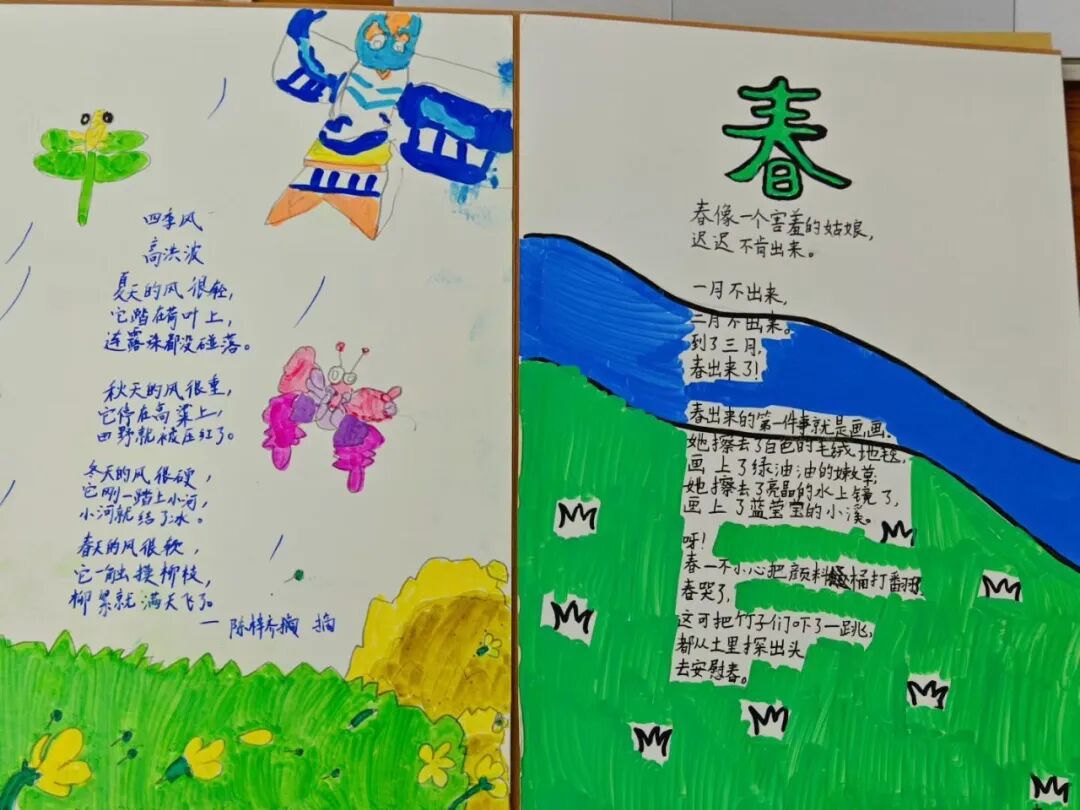 四季风
高洪波
夏天的风很轻，
它踏在荷叶上，
连露珠都没碰落。
秋天的风很重，
它停在高粱上，
田野就被压红了。
冬天的风很硬，
它刚一踏上小河，
小河就结了冰。
春天的风很软，
它一触摸柳枝，
柳絮就满天飞了。
摘
春
春像一个害羞的姑娘，
迟迟不肯出来。
一月不出来，
二月不出来。
到了三月，
春出来了！
春出来的第一件事就是画画。
她擦去了白色的毛绒地毯，
画上了绿油油的嫩草，
她擦去了亮晶的水上镜了，
画上了蓝莹莹的小溪。
呀！
春一不小心把颜料桶打翻
春哭了，
这可把竹子们吓了一跳，
都从土里探出头
去安慰春。